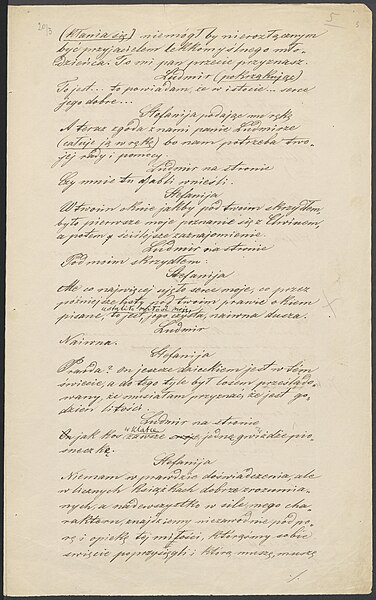 5
(kłania się) niemógł by nierozłącznym
być przyjacielem lekkomyślnego mło-
dzieńca. To mi pan przecie przyznasz.
Ludmir (pokazując)
To jest... to powiadam, że w istocie... serce
jego dobre...
Stefanija podając mu rękę
A teraz zgoda z nami panie Ludmirze
(całuje ją w rękę) bo nam potrzeba two-
jej rady i pomocy.
Ludmir na stronie
Czy mnie tu djabli wnieśli.
Stefanija
W twoim oknie jakby pod twoim skrzydłem,
było pierwsze moje poznanie się z
a potem ściślejsze zaznajomienie
Ludmir na stronie
Pod moim skrzydłem!
Stefanija
Ale co najwięcej ujęło serce moje, co przez
późniejsze listy pod twoim prawie okiem
pisane, to jest jego czysta, naiwna dusza.
Ludmir
Naiwna.
Stefanija
Prawda? on jeszcze dzieckiem jest w tém
świecie, a do tego tyle był losem prześlado-
wany, że musiałam przyznać że jest go-
dzien litości.
Ludmir na stronie
jak kos w klatce zawsze jedną gwiżdże pio-
sneczkę.
Stefanija
Niemam w prawdzie doświadczenia, ale
w licznych książkach dobrze zrozumia-
nych, a nadewszystko w sile mego cha-
rakteru, znajdziemy niezawodnie podpo-
rę i opiekę tej miłości, którąśmy sobie
święcie poprzysięgli i którą muszę, muszę